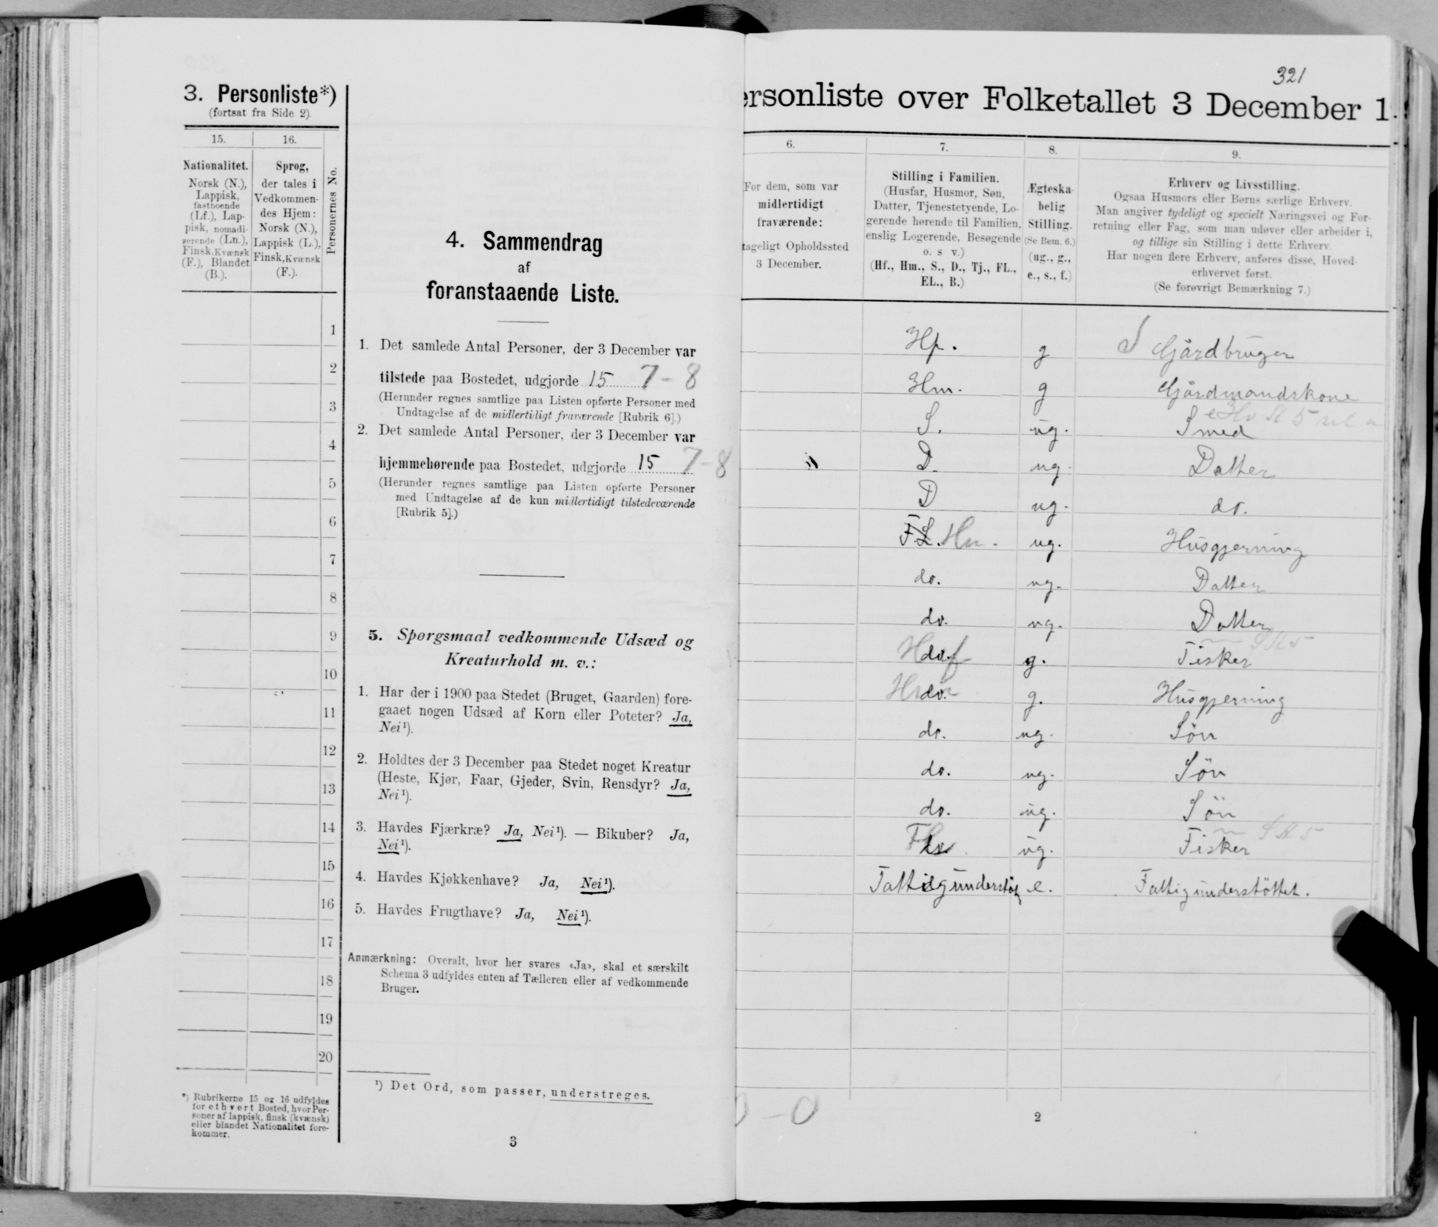 3. Personliste*)
(fortsat fra Side 2).
15.
16.
Nationalitet.
Norsk (N.),
Lappisk,
fastboende
(Lf.), Lap-
pisk, nomadi-
serende (Ln.),
Finsk, Kvænsk
(F.), Blandet
(B.).
Sprog,
der tales i
Vedkommen-
des Hjem:
Norsk (N.),
Lappisk (L.),
Finsk, Kvænsk
(F.).
Personernes No.
1
2
3
4
5
6
7
8
9
10
11
12
13
14
15
16
17
18
19
20
*) Rubrikerne 15 og 16 udfyldes
for ethvert Bosted, hvor Per-
soner af lappisk, finsk (kvænsk)
eller blandet Nationalitet fore-
kommer.
4. Sammendrag
af
foranstaaende Liste.
1. Det samlede Antal Personer, der 3 December var
tilstede paa Bostedet, udgjorde 15 7-8
(Herunder regnes samtlige paa Listen opførte Personer med
Undtagelse af de midlertidigt fraværende [Rubrik 6].)
2. Det samlede Antal Personer, der 3 December var
hjemmehørende paa Bostedet, udgjorde 15 7-8
(Herunder regnes samtlige paa Listen opførte Personer
med Undtagelse af de kun midlertidigt tilstedeværende
[Rubrik 5].)
5. Spørgsmaal vedkommende Udsæd og
Kreaturhold m. v.:
1. Har der i 1900 paa Stedet (Bruget, Gaarden) fore-
gaaet nogen Udsæd af Korn eller Poteter? Ja,
Nei¹).
2. Holdtes der 3 December paa Stedet noget Kreatur
(Heste, Kjør, Faar, Gjeder, Svin, Rensdyr? Ja,
Nei¹).
3. Havdes Fjærkræ? Ja, Nei¹). — Bikuber? Ja,
Nei¹).
4. Havdes Kjøkkenhave? Ja, Nei¹).
5. Havdes Frugthave? Ja, Nei¹).
Anmærkning: Overalt, hvor her svares «Ja», skal et særskilt
Schema 3 udfyldes enten af Tælleren eller af vedkommende
Bruger.
¹) Det Ord, som passer, understreges.
3
321
ersonliste over Folketallet 3 December 1
6.
For dem, som var
midlertidigt
fraværende:
tageligt Opholdssted
3 December.
7.
Stilling i Familien.
(Husfar, Husmor, Søn,
Datter, Tjenestetyende, Lo-
gerende hørende til Familien,
enslig Logerende, Besøgende
o. s. v.)
(Hf., Hm., S., D., Tj., FL.,
EL., B.)
8.
Ægteska-
belig
Stilling.
(Se Bem. 6.)
(ug., g.,
e., s., f.)
9.
Erhverv og Livsstilling.
Ogsaa Husmors eller Børns særlige Erhverv.
Man angiver tydeligt og specielt Næringsvei og For-
retning eller Fag, som man udøver eller arbeider i,
og tillige sin Stilling i dette Erhverv.
Har nogen flere Erhverv, anføres disse, Hoved-
erhvervet først.
(Se forøvrigt Bemærkning 7.)
Hf. g Gårdbruger
Hm. g Gårdmandskone
S. ug. Smed
D. ug. Datter
D ug. do.
FL. Hm. ug. Husgjerning
do. ug. Datter
do. ug. Datter
do. Hf g. Fisker
do. g. Husgjerning
do. ug. Sön
do. ug. Sön
do. ug. Sön
ug. Fisker
Fattigunderstøt e. Fattigunderstöttet.
0-0
2